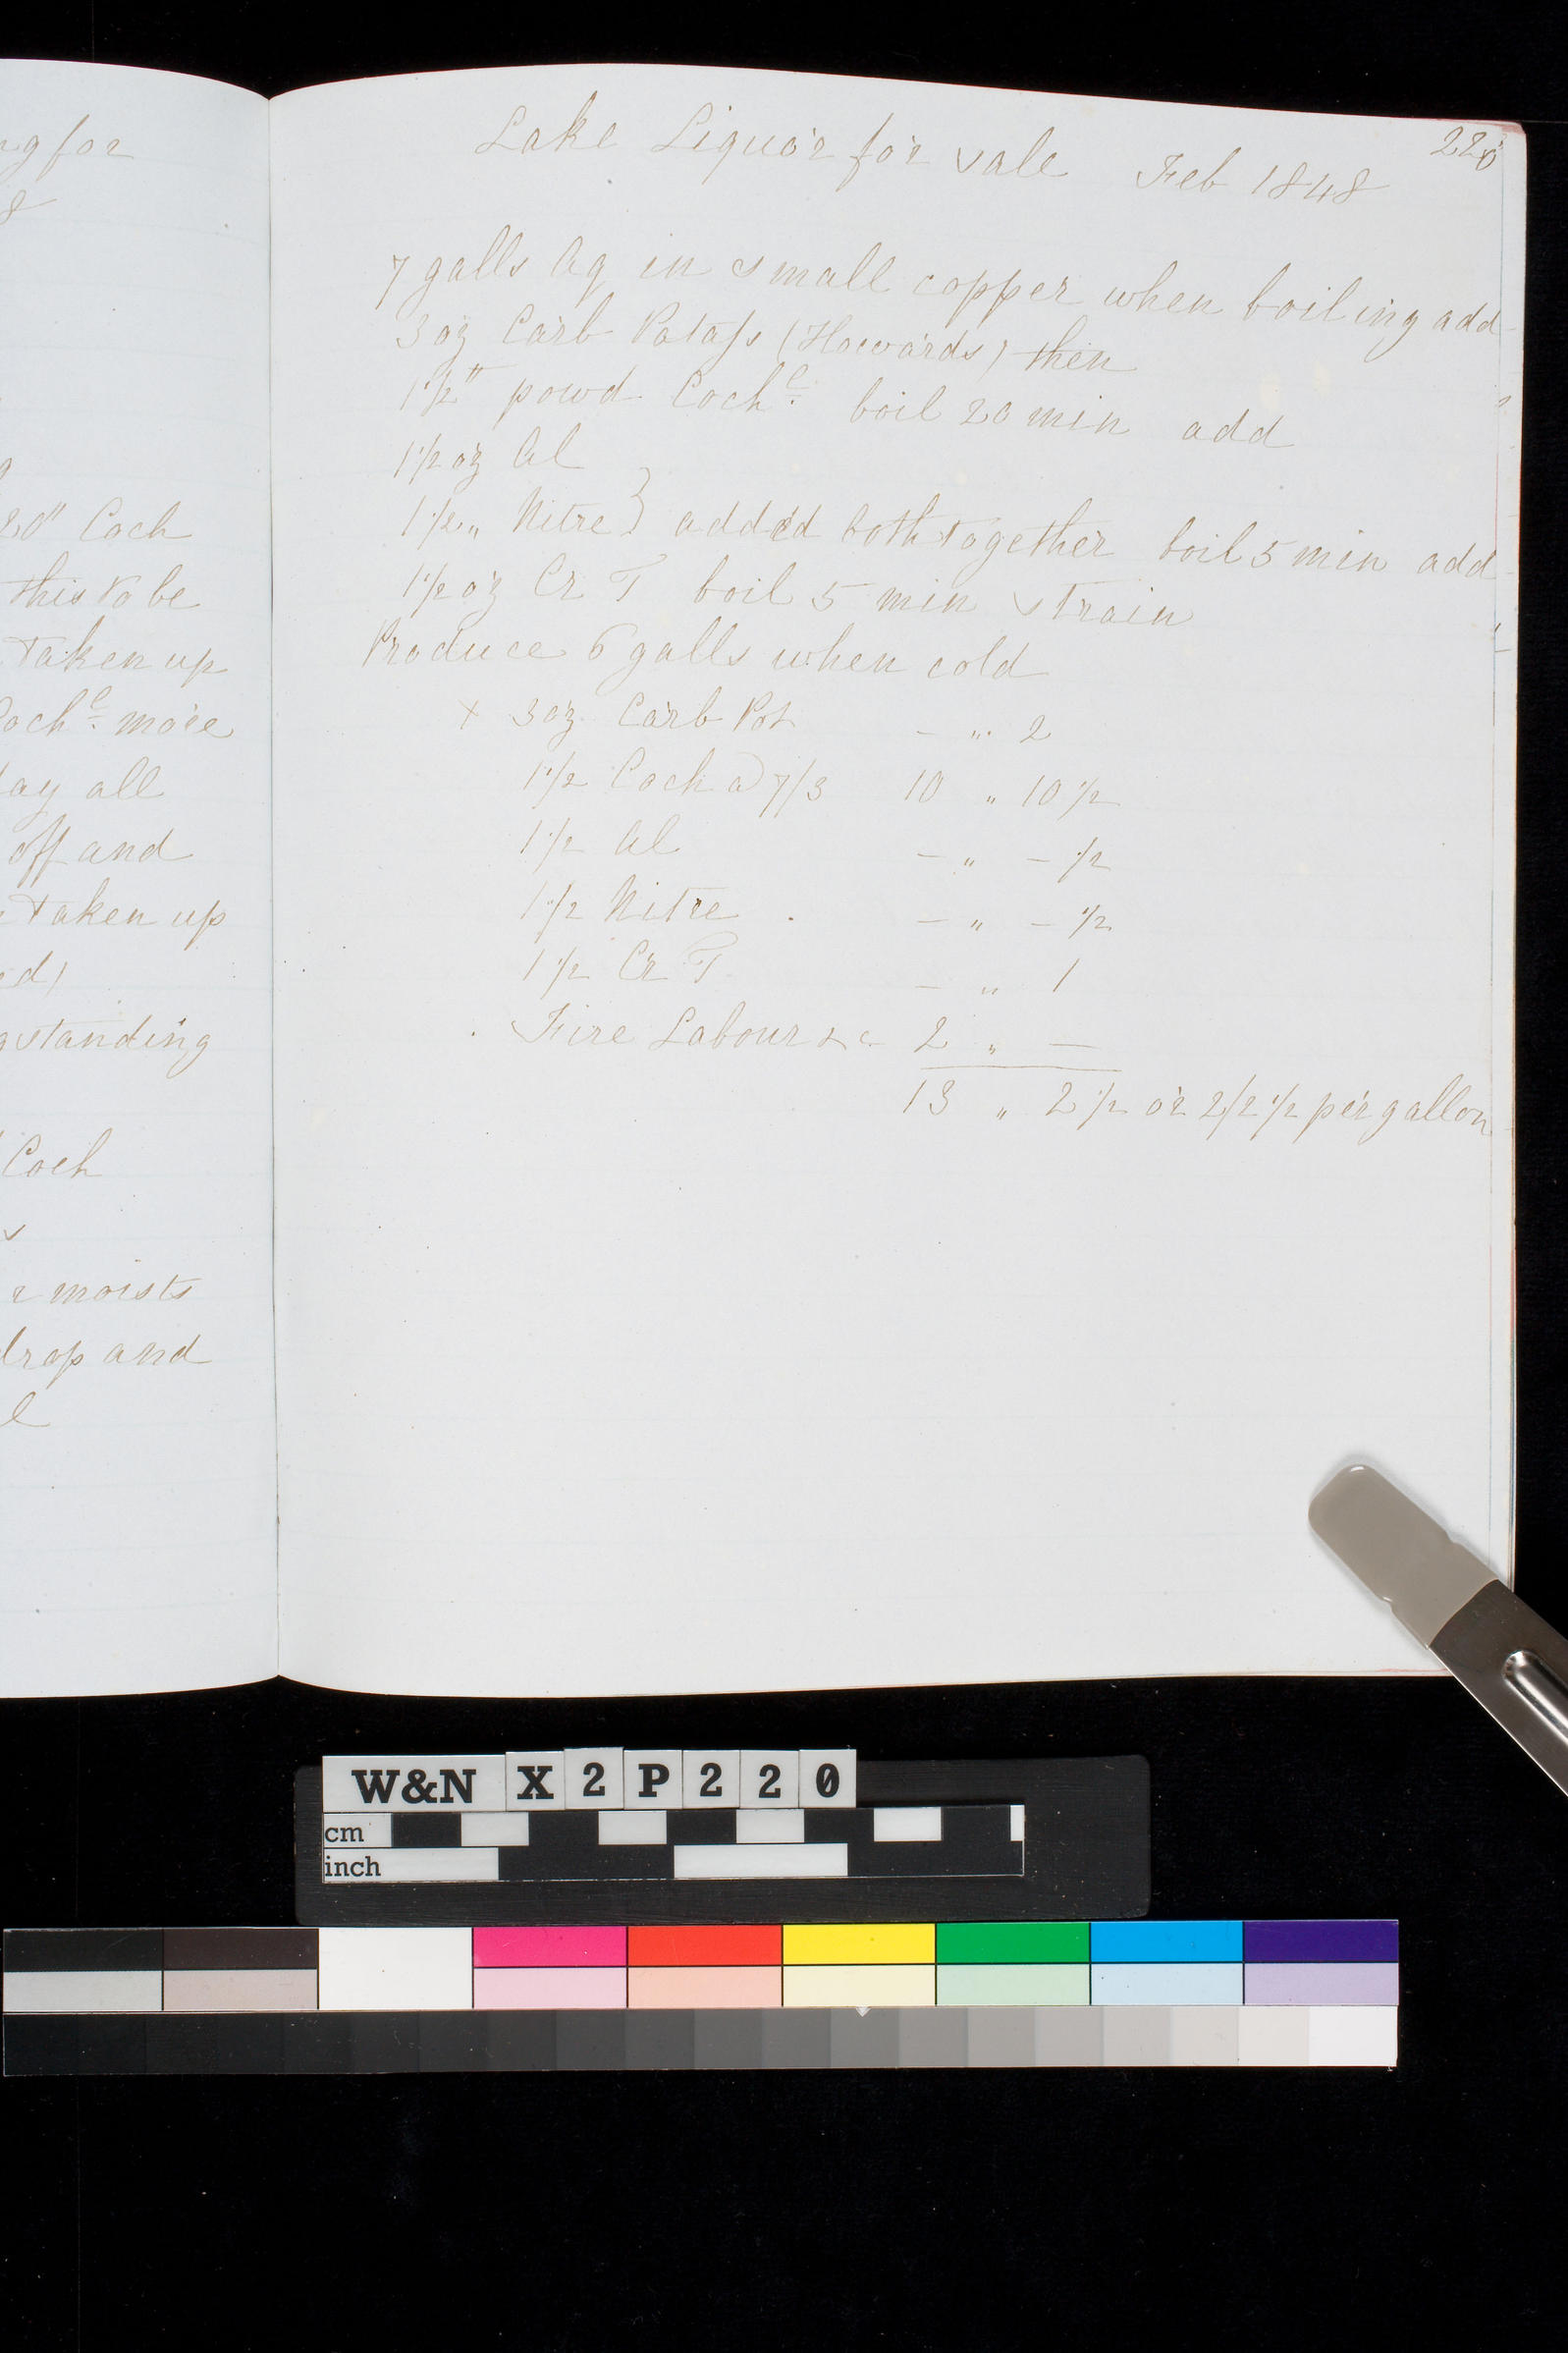 ng for
8
20" Coch
this to be
taken up
Coch.e more
day all
off and
taken up
ed)
standing
Coch
s
moists
drop and
220
Lake Liquor for sale Feb 1848
7 galls Aq in small copper when boiling add
3 oz Carb Potass (Howards) then
1 1/2" powd Coch.e boil 20 min add
1 1/2 oz Al
1 1/2 „ Nitre } added both together boil 5 min add
1 1/2 oz Cr T boil 5 min strain
Produce 6 galls when cold
x 3 oz Carb Pot - „ 2
1 1/2 Coch a 7/3 10 „ 10 1/2
1 1/2 Al - „ - 1/2
1 1/2 Nitre - „ - 1/2
1 1/2 Cr T - „ 1
Fire Labour &c 2 „ -
13 „ 2 1/2 or 2/2 1/2 per gallon
W&N X 2 P 2 2 0
cm
inch